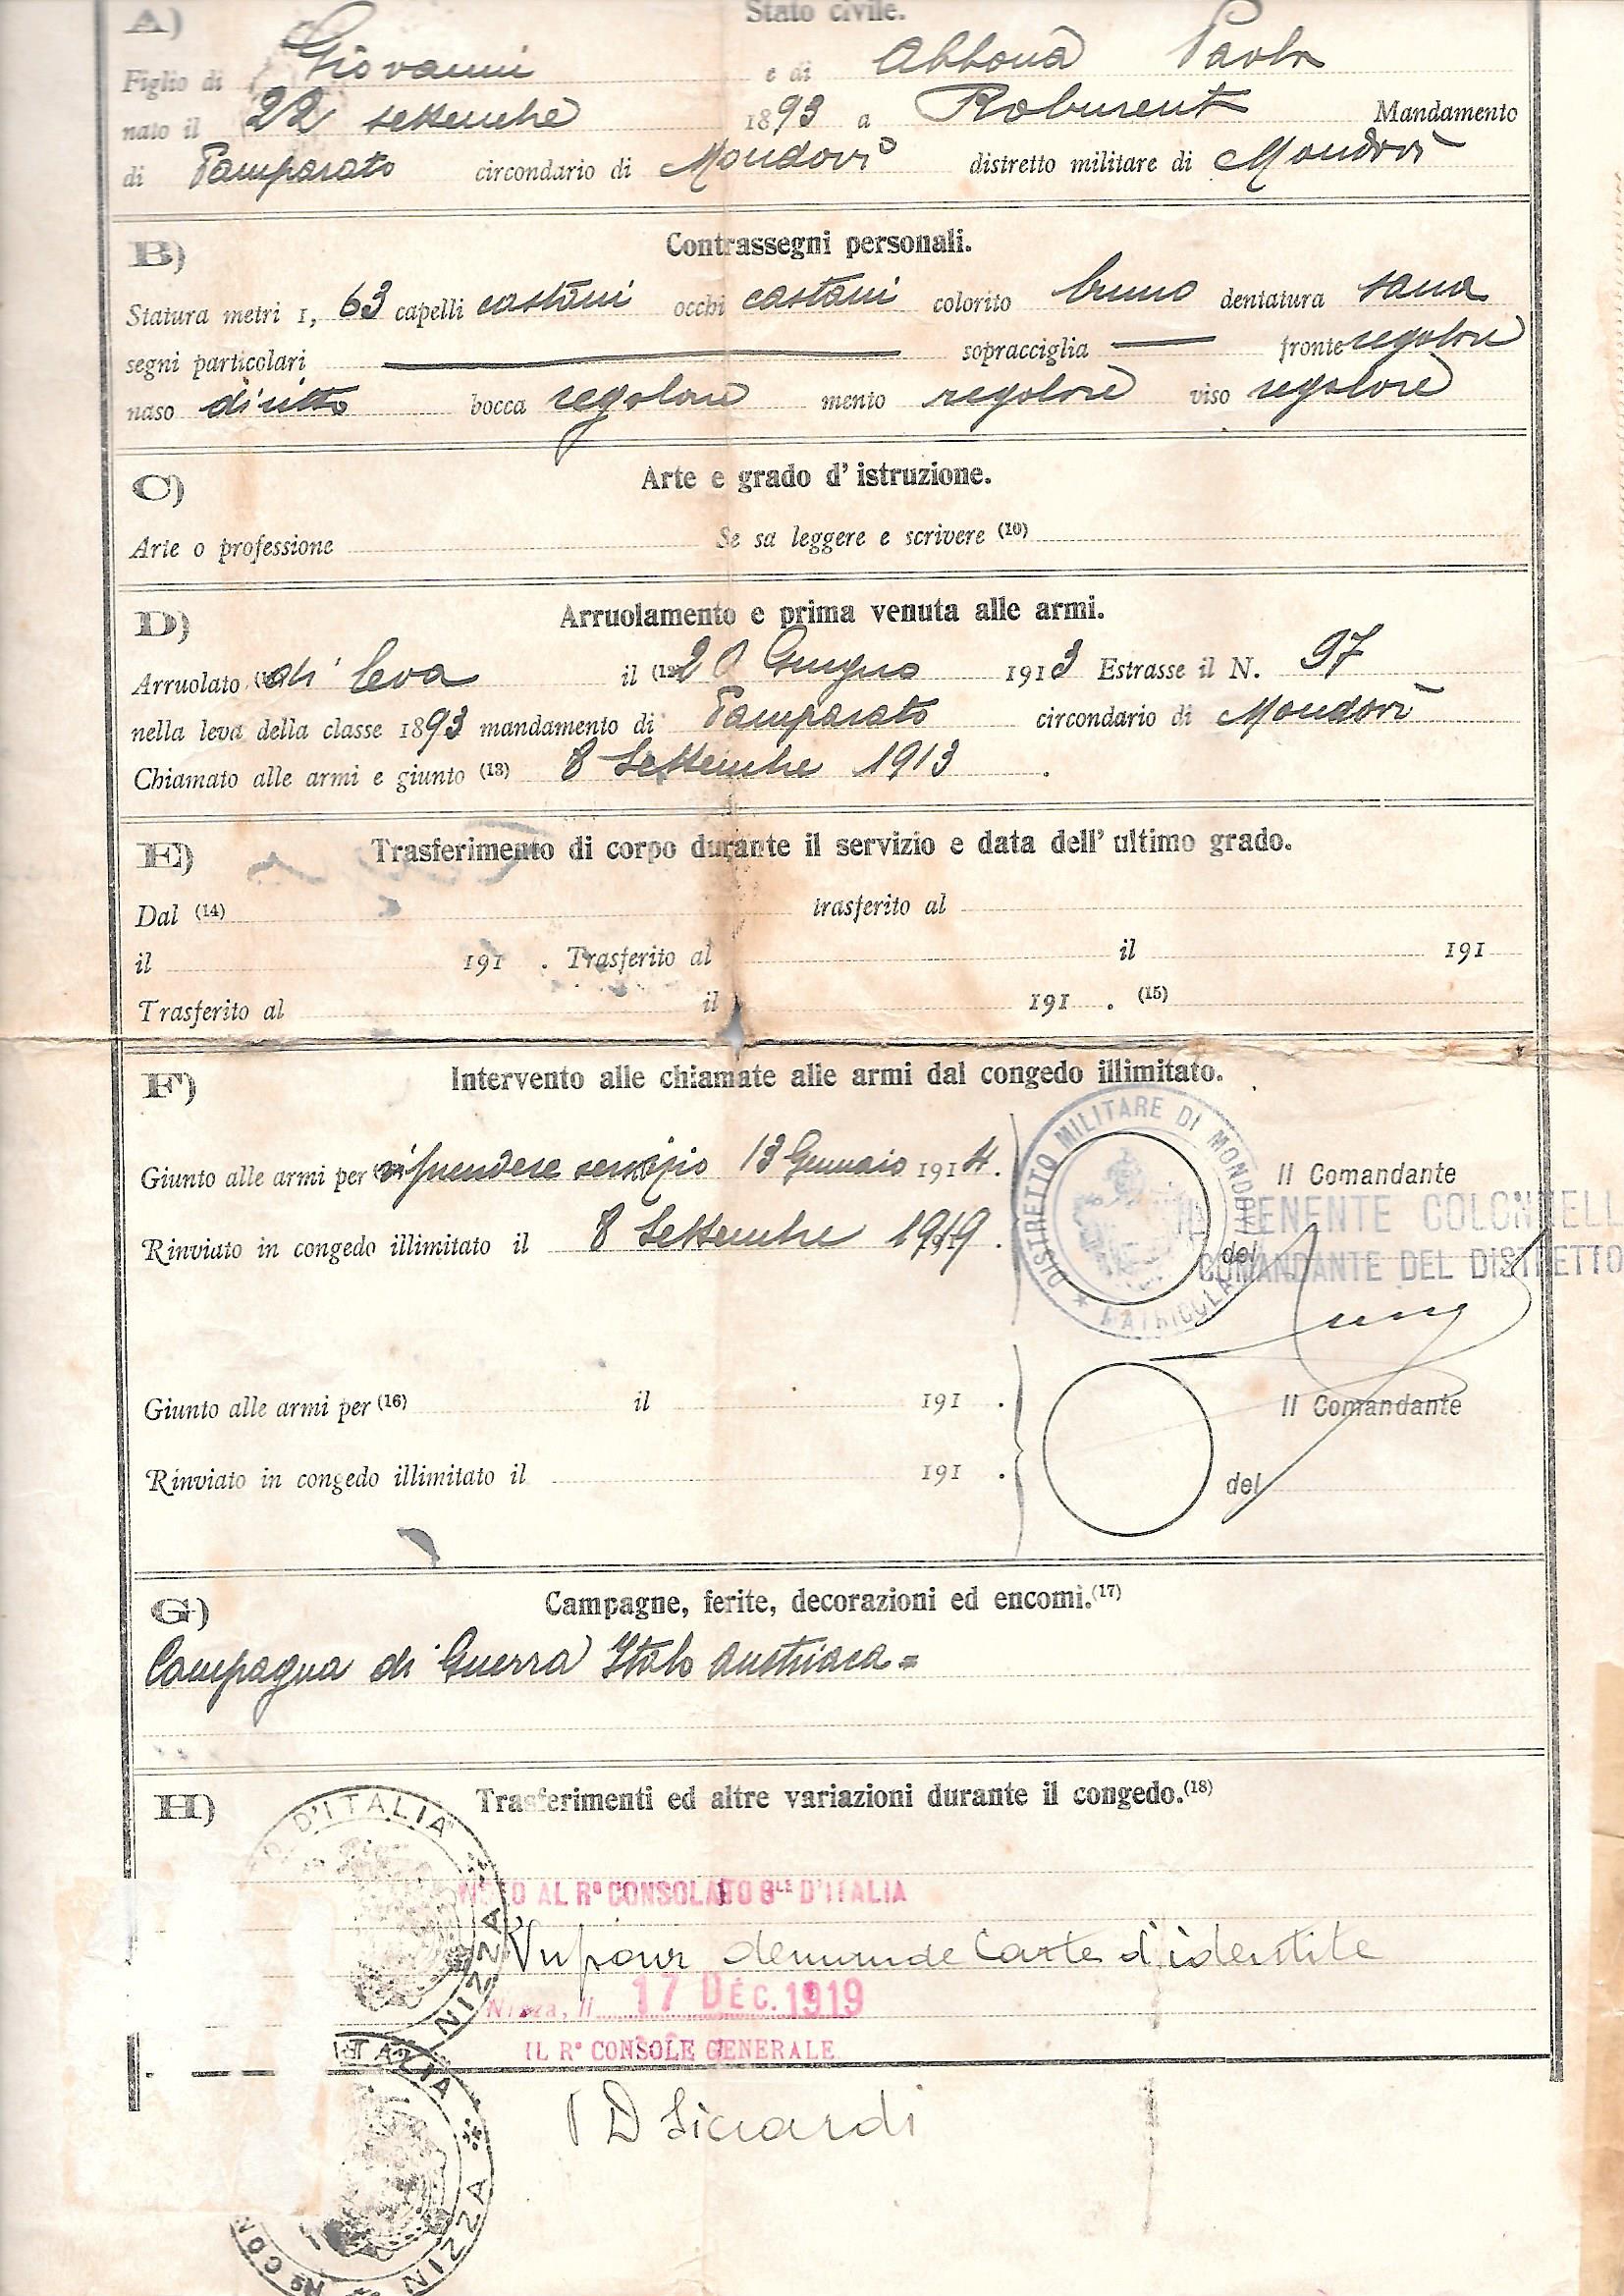 A) Stato civile.
Figlio di Giovanni e di Abbonà Paola
nato il 22 settembre 1893 a Roburent Mandamento
di Pamparato circondario di Mondovì distretto militare di Mondovì
B) Contrassegni personali.
Statura metri 1, 63 capelli castani occhi castani colorito bruno dentatura sana
segni particolari — sopracciglia — fronte regolare
naso diritto bocca regolare mento regolare viso regolare
C) Arte e grado d' istruzione.
Arte o professione Se sa leggere e scrivere (10)
D) Arruolamento e prima venuta alle armi.
Arruolato di leva il (12) 20 Giugno 1913 Estrasse il N. 97
nella leva della classe 1893 mandamento di Pamparato circondario di Mondovì
Chiamato alle armi e giunto (13) 8 Settembre 1913 .
E) Trasferimento di corpo durante il servizio e data dell' ultimo grado.
Dal (14) trasferito al
il 191 . Trasferito al il 191
Trasferito al il 191 . (15)
F) Intervento alle chiamate alle armi dal congedo illimitato.
DISTRETTO MILITARE DI MONDOVÌ * MATRICOLA
Giunto alle armi per riprendere servizio 13 Gennaio 1914. Il Comandante
IL TENENTE COLONNELL
Rinviato in congedo illimitato il 8 Settembre 1919 . del
COMANDANTE DEL DISTRETTO
Giunto alle armi per (16) il 191 . Il Comandante
Rinviato in congedo illimitato il 191 . del
G) Campagne, ferite, decorazioni ed encomi.(17)
Campagna di Guerra Italo Austriaca =
H) Trasferimenti ed altre variazioni durante il congedo.(18)
D'ITALIA NIZZA
AL Rº CONSOLATO GLE D'ITALIA
Vu pour demande Carte d'identite
Nizza, li 17 DÉC. 1919
IL Rº CONSOLE GENERALE
D Siccardi
Rº CON ITALIA * NIZZA